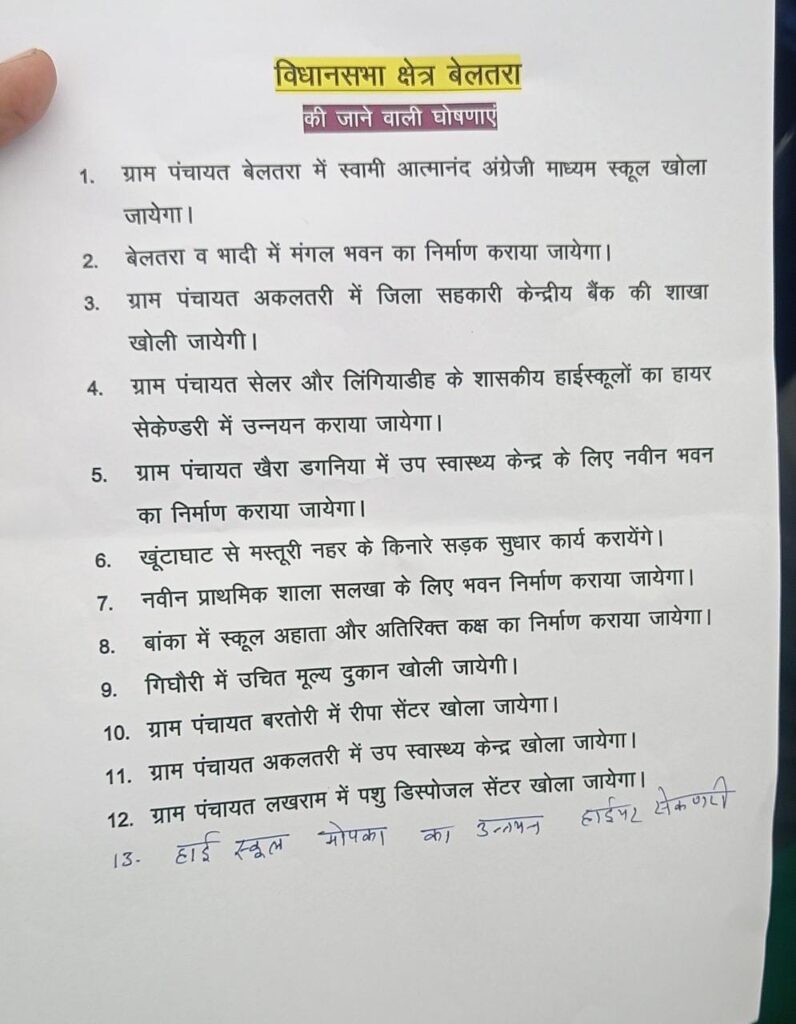 विधानसभा क्षेत्र बेलतरा
की जाने वाली घोषणाएं
1. ग्राम पंचायत बेलतरा में स्वामी आत्मानंद अंग्रेजी माध्यम स्कूल खोला
जायेगा।
2. बेलतरा व भादी में मंगल भवन का निर्माण कराया जायेगा।
3. ग्राम पंचायत अकलतरी में जिला सहकारी केन्द्रीय बैंक की शाखा
खोली जायेगी।
4. ग्राम पंचायत सेलर और लिंगियाडीह के शासकीय हाईस्कूलों का हायर
सेकेण्डरी में उन्नयन कराया जायेगा।
5. ग्राम पंचायत खैरा डगनिया में उप स्वास्थ्य केन्द्र के लिए नवीन भवन
का निर्माण कराया जायेगा।
6. खूंटाघाट से मस्तूरी नहर के किनारे सड़क सुधार कार्य करायेंगे।
7. नवीन प्राथमिक शाला सलखा के लिए भवन निर्माण कराया जायेगा।
8. बांका में स्कूल अहाता और अतिरिक्त कक्ष का निर्माण कराया जायेगा।
9. गिघौरी में उचित मूल्य दुकान खोली जायेगी।
10. ग्राम पंचायत बरतोरी में रीपा सेंटर खोला जायेगा।
11. ग्राम पंचायत अकलतरी में उप स्वास्थ्य केन्द्र खोला जायेगा।
12. ग्राम पंचायत लखराम में पशु डिस्पोजल सेंटर खोला जायेगा।
13. हाई स्कूल मोपका का उन्नयन हाईयर सेकण्डरी